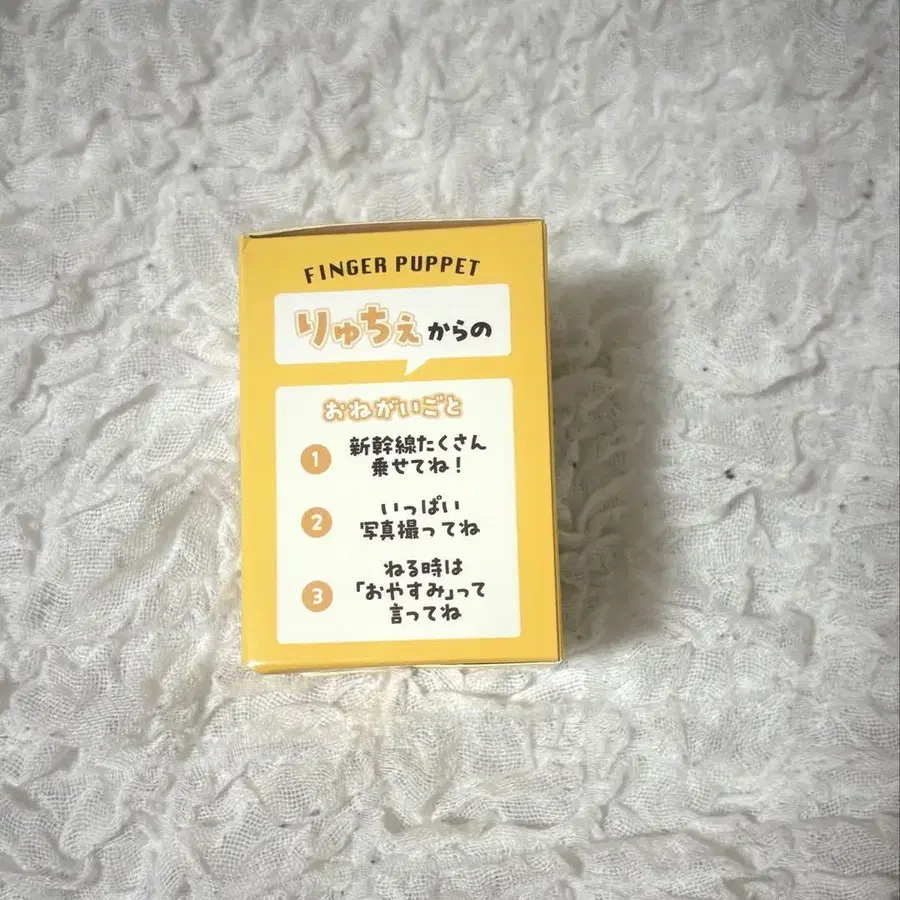 FINGER PUPPET
りゅちぇからの
おねがいごと
1 新幹線たくさん
乗せてね!
2 いっぱい
写真撮ってね
3 ねる時は
「おやすみ」って
言ってね